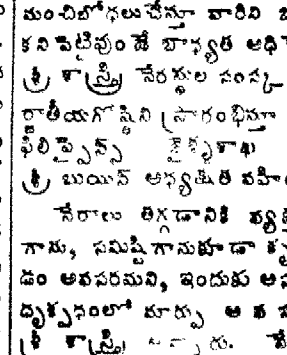 మంచిబోధలుచేస్తూ వారిని
కనిపెట్టివుండే బాధ్యత అధి
శ్రీ శాస్త్రి నేరస్థుల సంస్క
ర్జాతీయగోష్ఠిని ప్రారంభిస్తూ
ఫిలిప్పైన్స్
శ్రీ బుయిన్ అధ్యక్షత వహి
నేరాలు తగ్గడానికి వ్య
గాను, సమిష్టిగానుకూడా కృ
డం అవసరమని, ఇందుకు
దృక్పథంలో మార్పు అవస
శ్రీ శాస్త్రి అన్నారు.